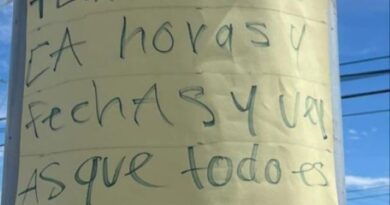 CA horas y
fechas y ver
as que todo es